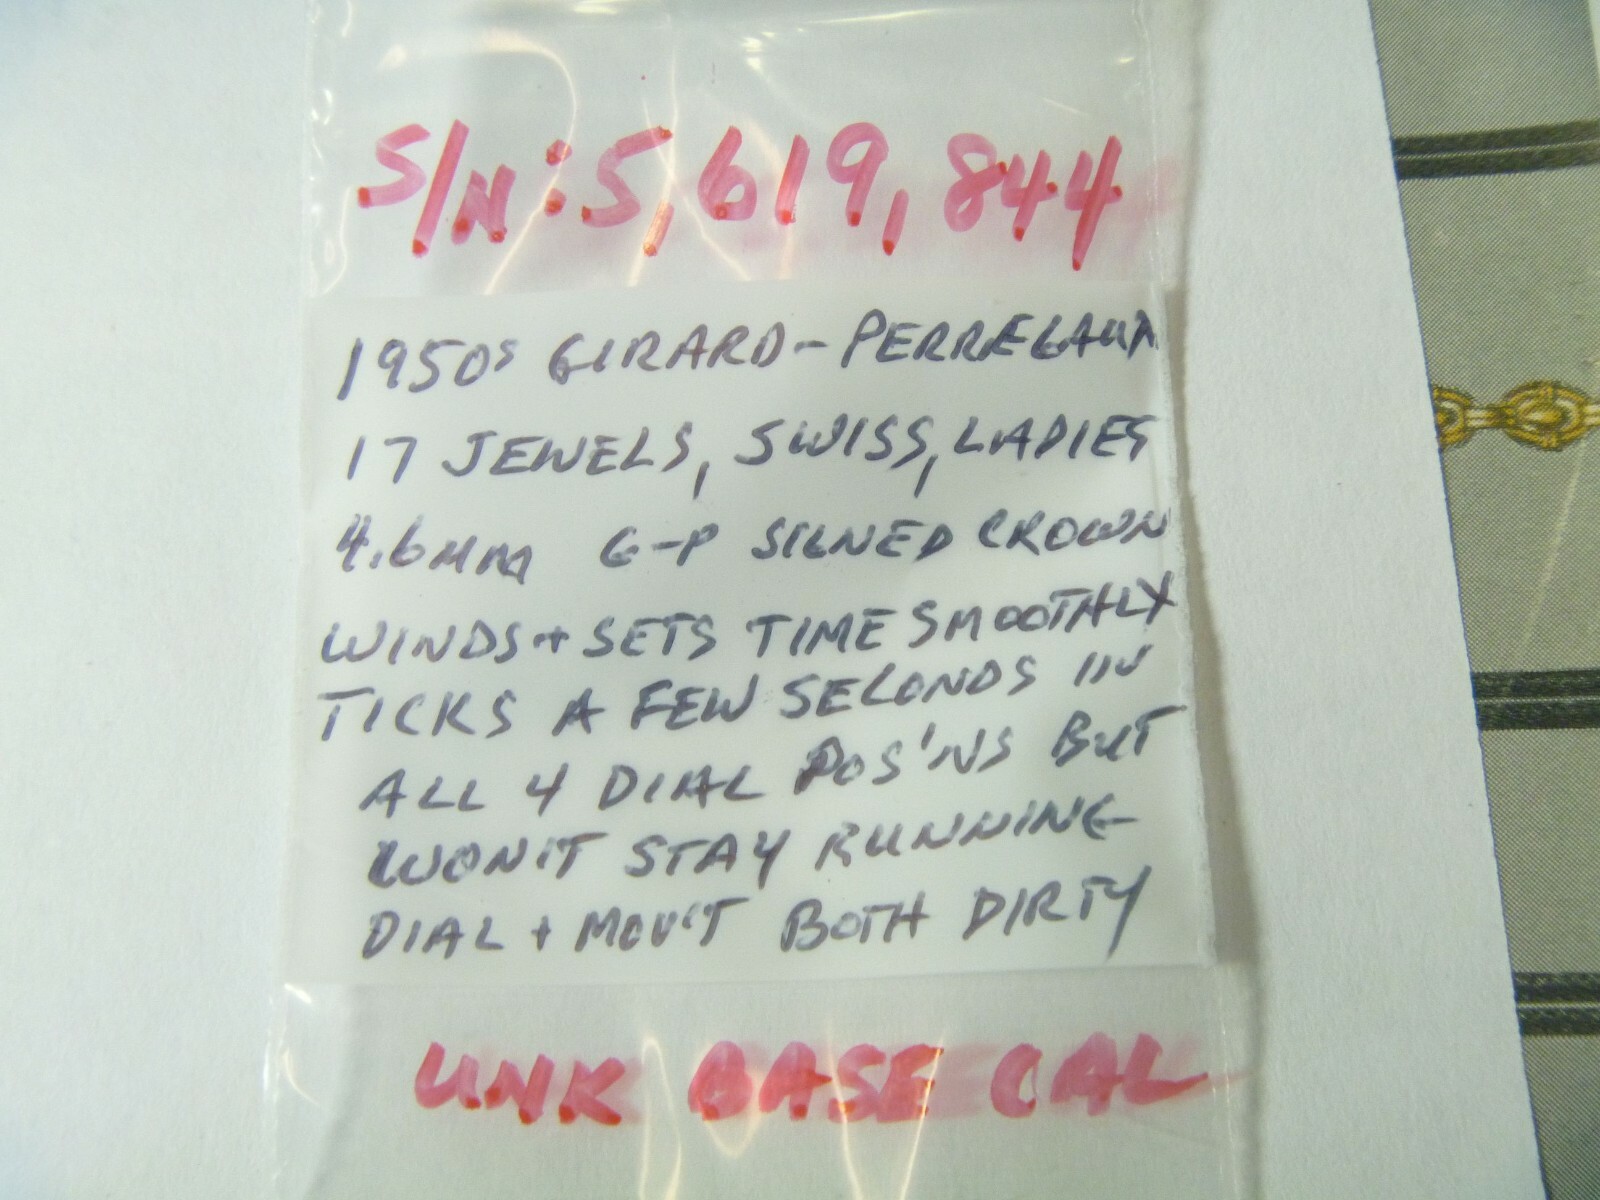 S/N: 5,619,844
1950s GIRARD-PERREGAUX
17 JEWELS, SWISS, LADIES
4.6MM G-P SIGNED CROWN
WINDS + SETS TIME SMOOTHLY
TICKS A FEW SECONDS IN
ALL 4 DIAL POS'NS BUT
WON'T STAY RUNNING-
DIAL + MOV'T BOTH DIRTY
UNK BASE CAL